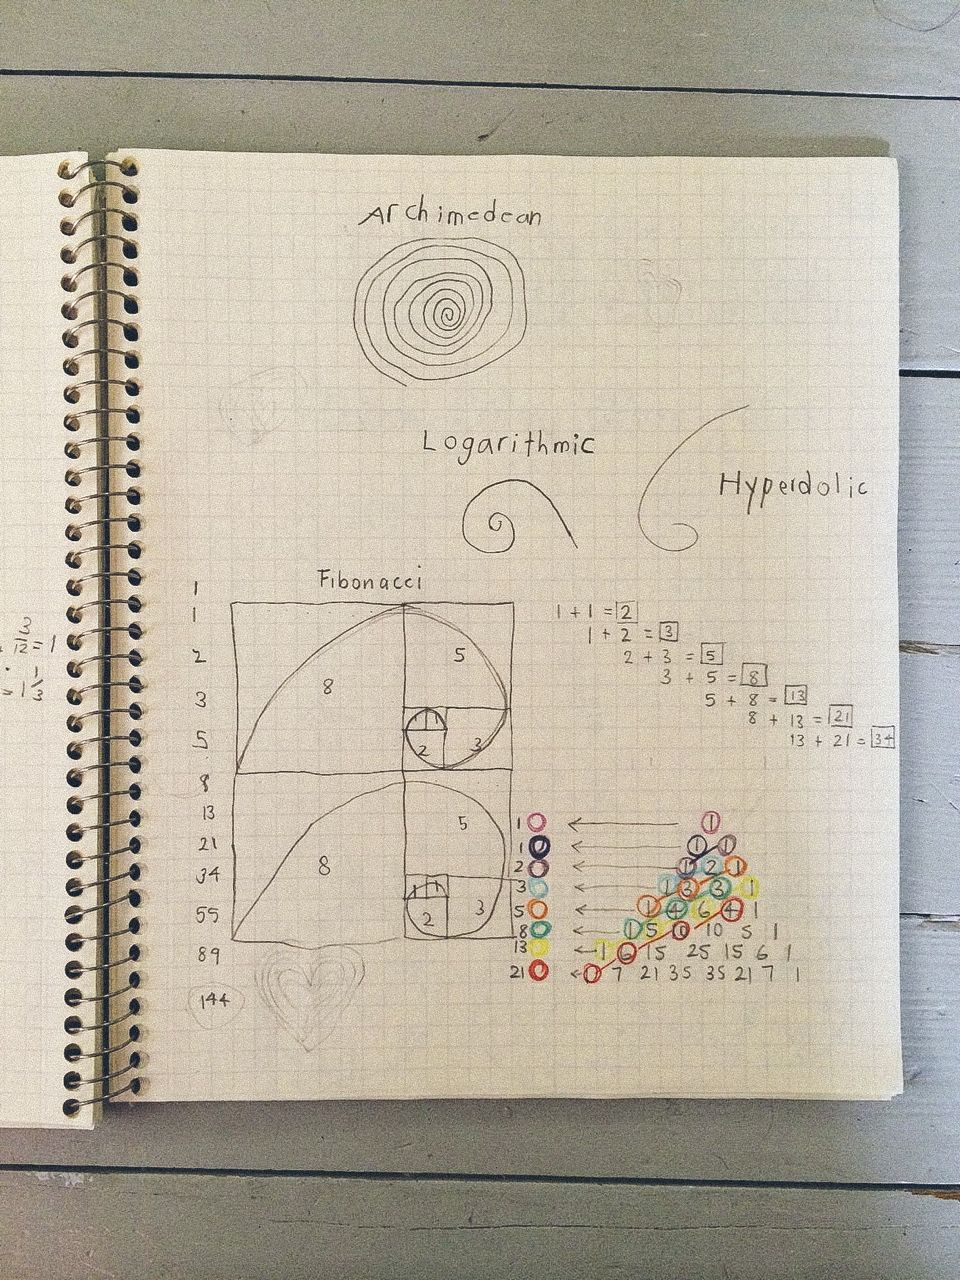 Archimedean
Logarithmic
Hyperdolic
Fibonacci
1
1
2
3
5
8
13
21
34
55
89
144
8
5
1 1
2
3
8
5
1 1
2
3
1 + 1 = 2
1 + 2 = 3
2 + 3 = 5
3 + 5 = 8
5 + 8 = 13
8 + 13 = 21
13 + 21 = 34
1
1
2
3
5
8
13
21
1
1 1
1 2 1
1 3 3 1
1 4 6 4 1
1 5 10 10 5 1
1 6 15 25 15 6 1
7 21 35 35 21 7 1
3
12 = 1
= 1 1/3